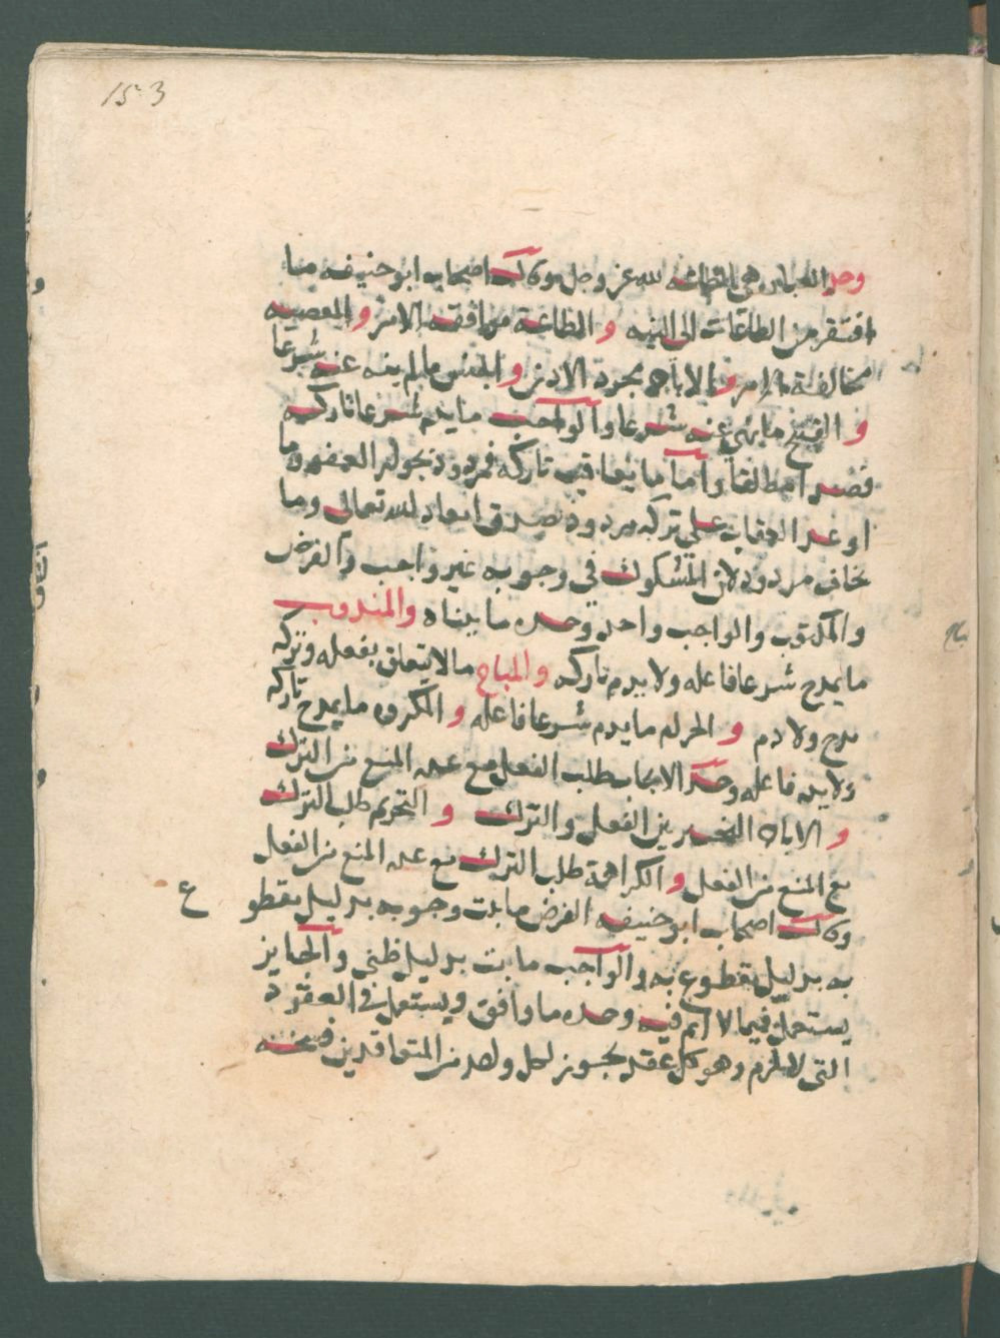 153
وحد العباده هي الطاعه لله عز وجل وقالت اصحاب ابو حنيفه ما
افتقر من الطاعات الى النيه و الطاعة موافقة الامر و المعصيه
مخالفة الامر و الاباحه مجرد الاذن و الحسن ما لم ينه عنه شرعا
و القبيح ما نهى عنه شرعا والواجب ما يذم شرعا تاركه
قصدا مطلقا واما ما يعاقب تاركه فمردود بجواز العفو وما
اوعد العقاب على تركه مردود بصدق ايعاد الله تعالى وما
يخاف مردود لان المشكوك في وجوبه غير واجب والفرض
والمكتوب والواجب واحد وحده ما بيناه والمندوب
ما يمدح شرعا فاعله ولا يذم تاركه والمباح ما لا يتعلق بفعله وتركه
مدح ولا ذم و الحرام ما يذم شرعا فاعله و المكروه ما يمدح تاركه
ولا يذم فاعله وحد الايجاب طلب الفعل مع عدم المنع من الترك
و الاباحه التخيير بين الفعل والترك و التحريم طلب الترك
مع المنع من الفعل و الكراهة طلب الترك مع عدم المنع من الفعل
وقالت اصحاب ابو حنيفه الفرض ما ثبت وجوبه بدليل مقطو ع
به بدليل مقطوع به والواجب ما ثبت بدليل ظني والجايز
يستعمل فيما لا اثم فيه وحده ما وافق ويستعمل في العقود
التي لا تلزم وهو كل عقد يجوز لكل واحد من المتعاقدين فسخه